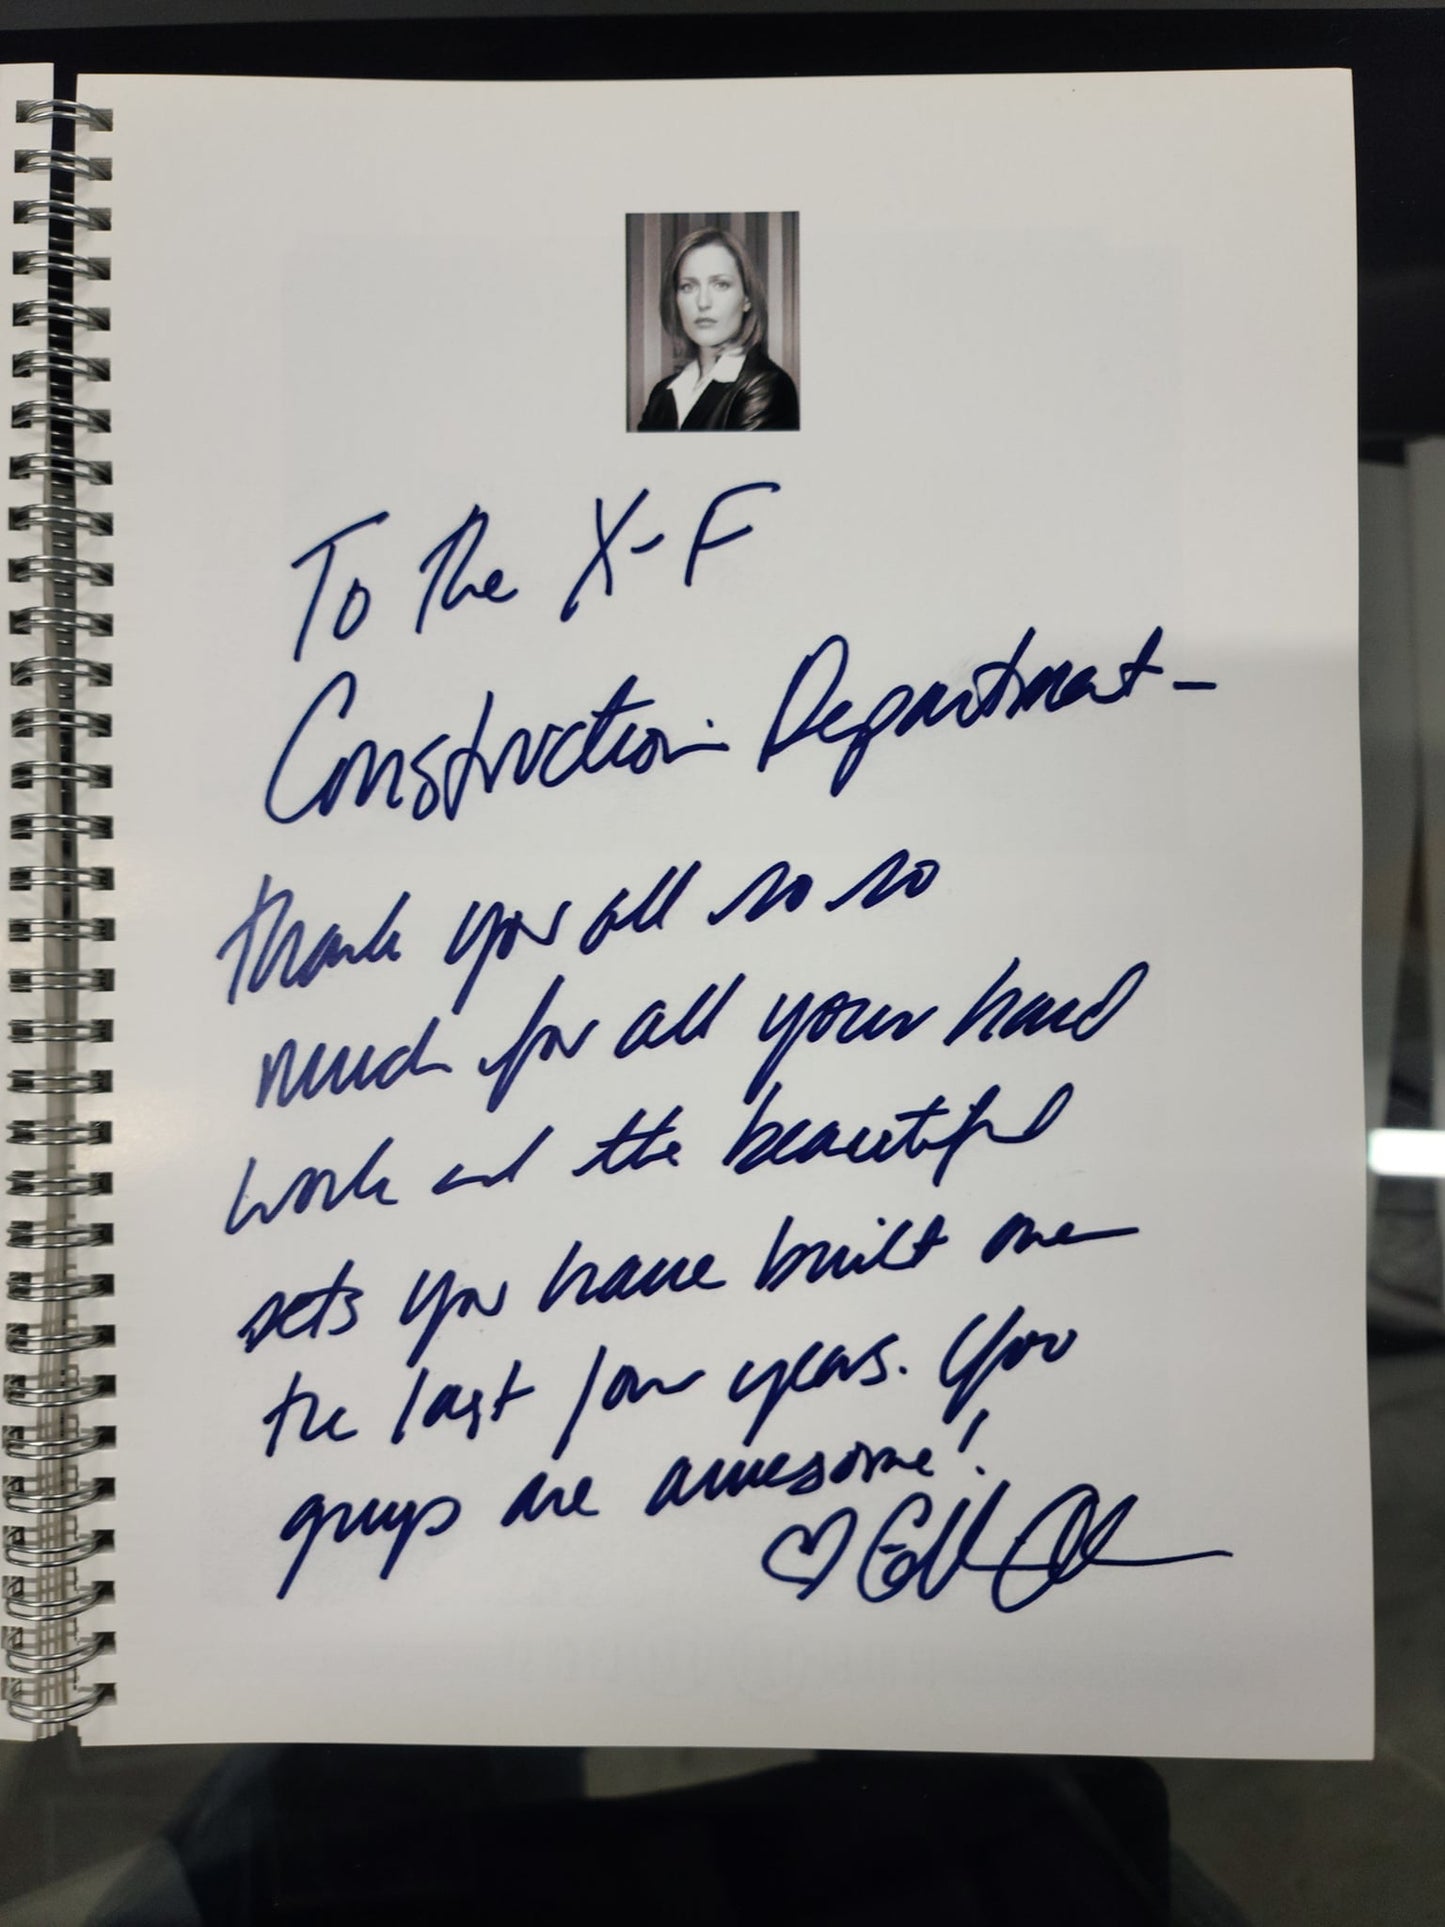 To The X-F
Construction Department-
Thank you all so so
much for all your hard
work and the beautiful
sets you have built over
the last four years. You
guys are awesome!
♡